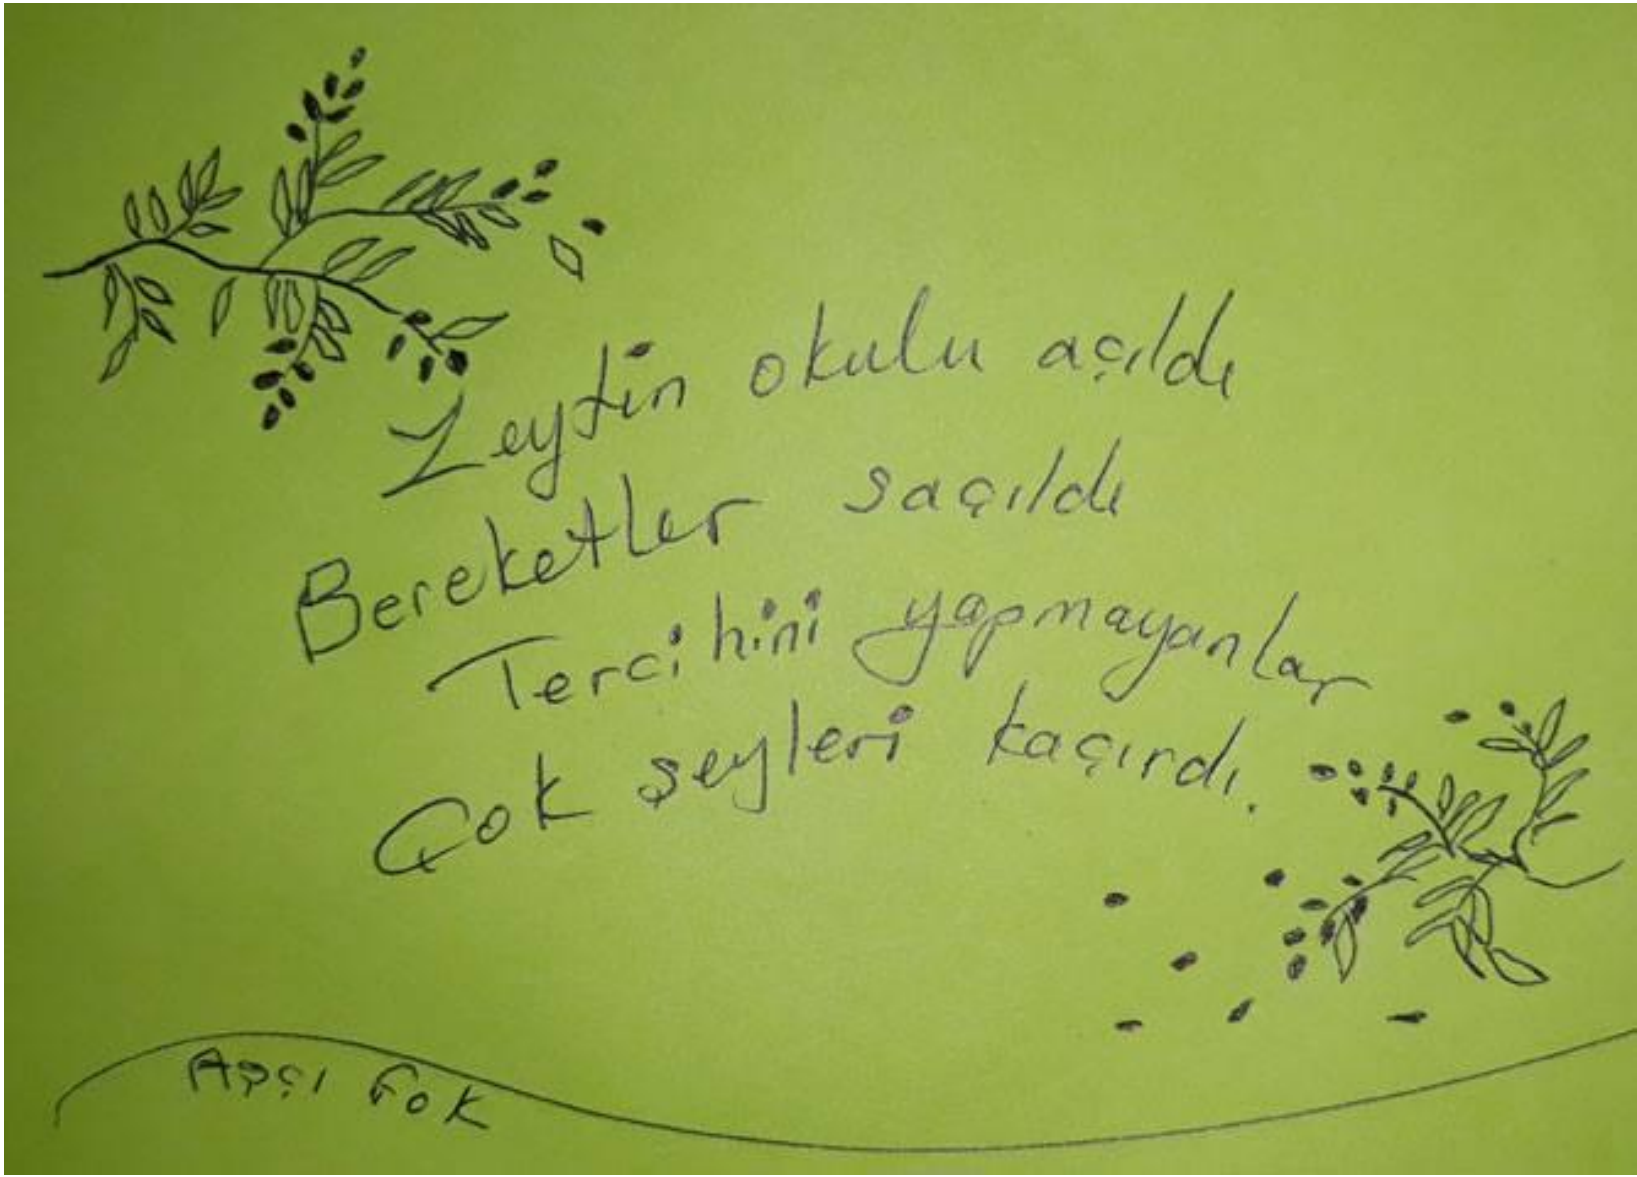 Zeytin okulu açıldı
Bereketler saçıldı
Tercihini yapmayanlar
Çok şeyleri kaçırdı.